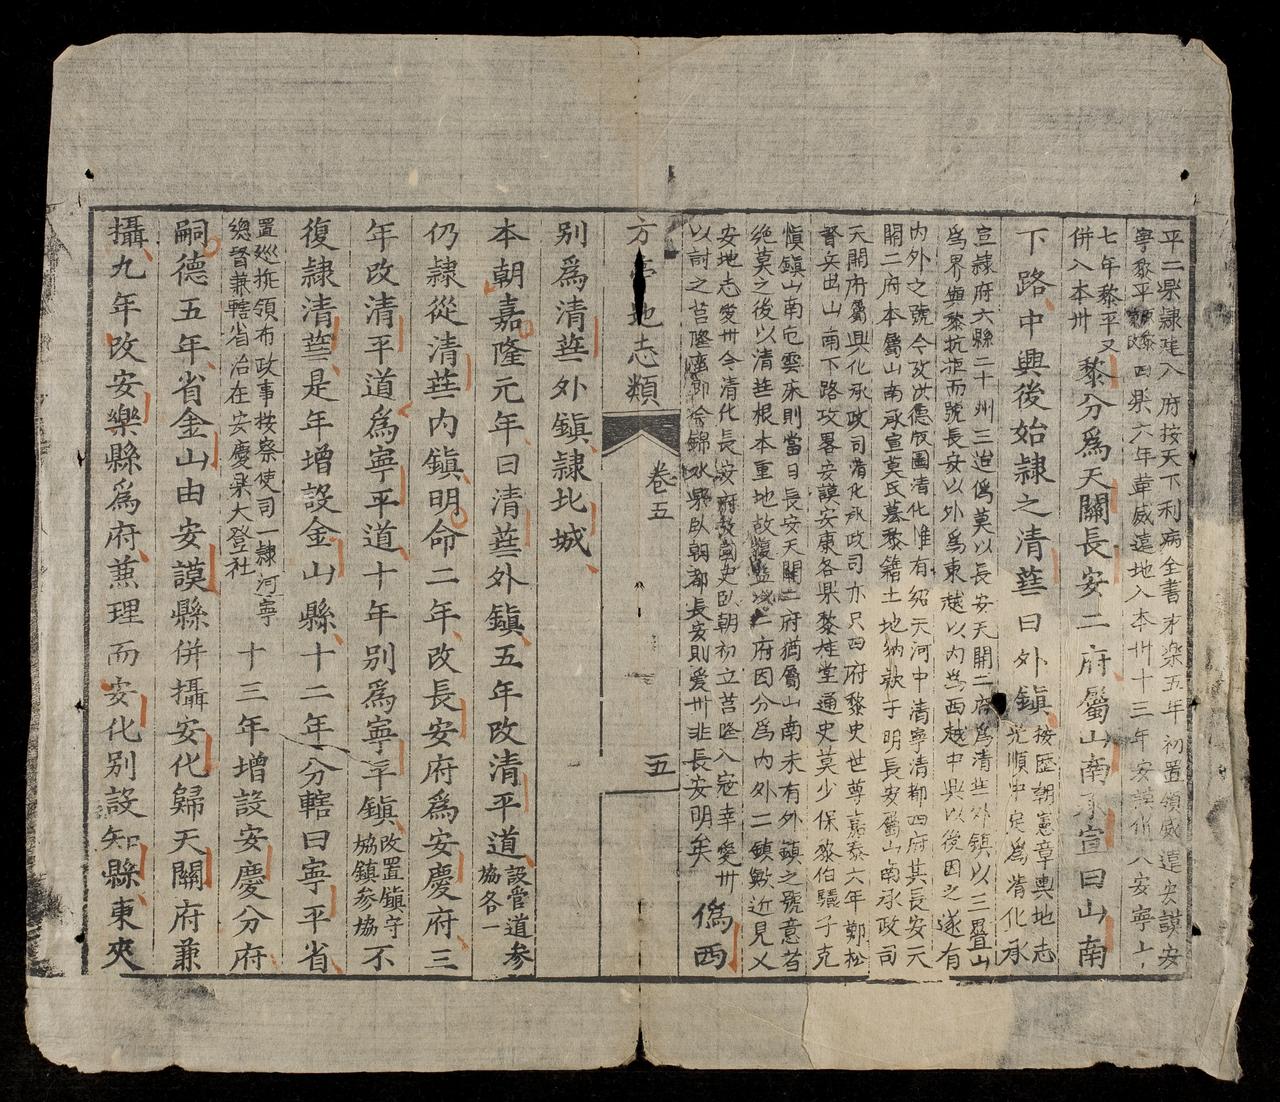 平二縣隸建入府按天下利病全書才梁五年初置領威遠安謨安
寧黎平四縣六年葦威遠地入本州十三年安謨併入安寧上
七年黎平又
併入本州
黎分爲天關長安二府屬山南承宣曰山南
下路中興後始隸之清華曰外鎮
按歷朝憲章輿地志
光順中定爲清化承
宣隸府六縣二十州三迨僞莫以長安天關二府爲清華外鎮以三疊山
爲界與黎抗拒而號長安以外爲東越以内爲西越中興以後因之遂有
内外之號今攷洪德版圖清化惟有紹天河中清寧清都四府其長安天
關二府本屬山南承宣莫氏墓黎籍土地納款于明長安屬山南承政司
天關府屬興化承政司清化承政司亦只四府黎史世尊嘉泰六年鄭松
督兵出山南下路攻畧安謨安東各縣黎桂堂通史莫少保黎伯驥子克
愼鎮山南屯雲床則當日長安天關二府猶屬山南未有外鎮之號意者
絶莫之後以清華根本重地故二府因分爲内外二鎮歟近見乂
安地志愛州今清化長安府國史臥朝初立莒隆入寇幸愛州
以討之莒隆即今錦水縣臥朝都長安則愛州非長安明矣
僞西
方亭地志類
卷五
五
別爲清華外鎮隸北城
本朝嘉隆元年曰清華外鎮五年改清平道
設管道參
協各一
仍隸從清華内鎮明命二年改長安府爲安慶府三
年改清平道爲寧平道十年別爲寧平鎮
改置鎮守
協鎮參協
不
復隸清華是年增設金山縣十二年分轄曰寧平省
置廵撫領布政事按察使司一隸河寧
總督兼轄省治在安慶縣大登社
十三年增設安慶分府
嗣德五年省金山由安謨縣併攝安化歸天關府兼
攝九年改安樂縣爲府兼理而安化別設知縣東夾